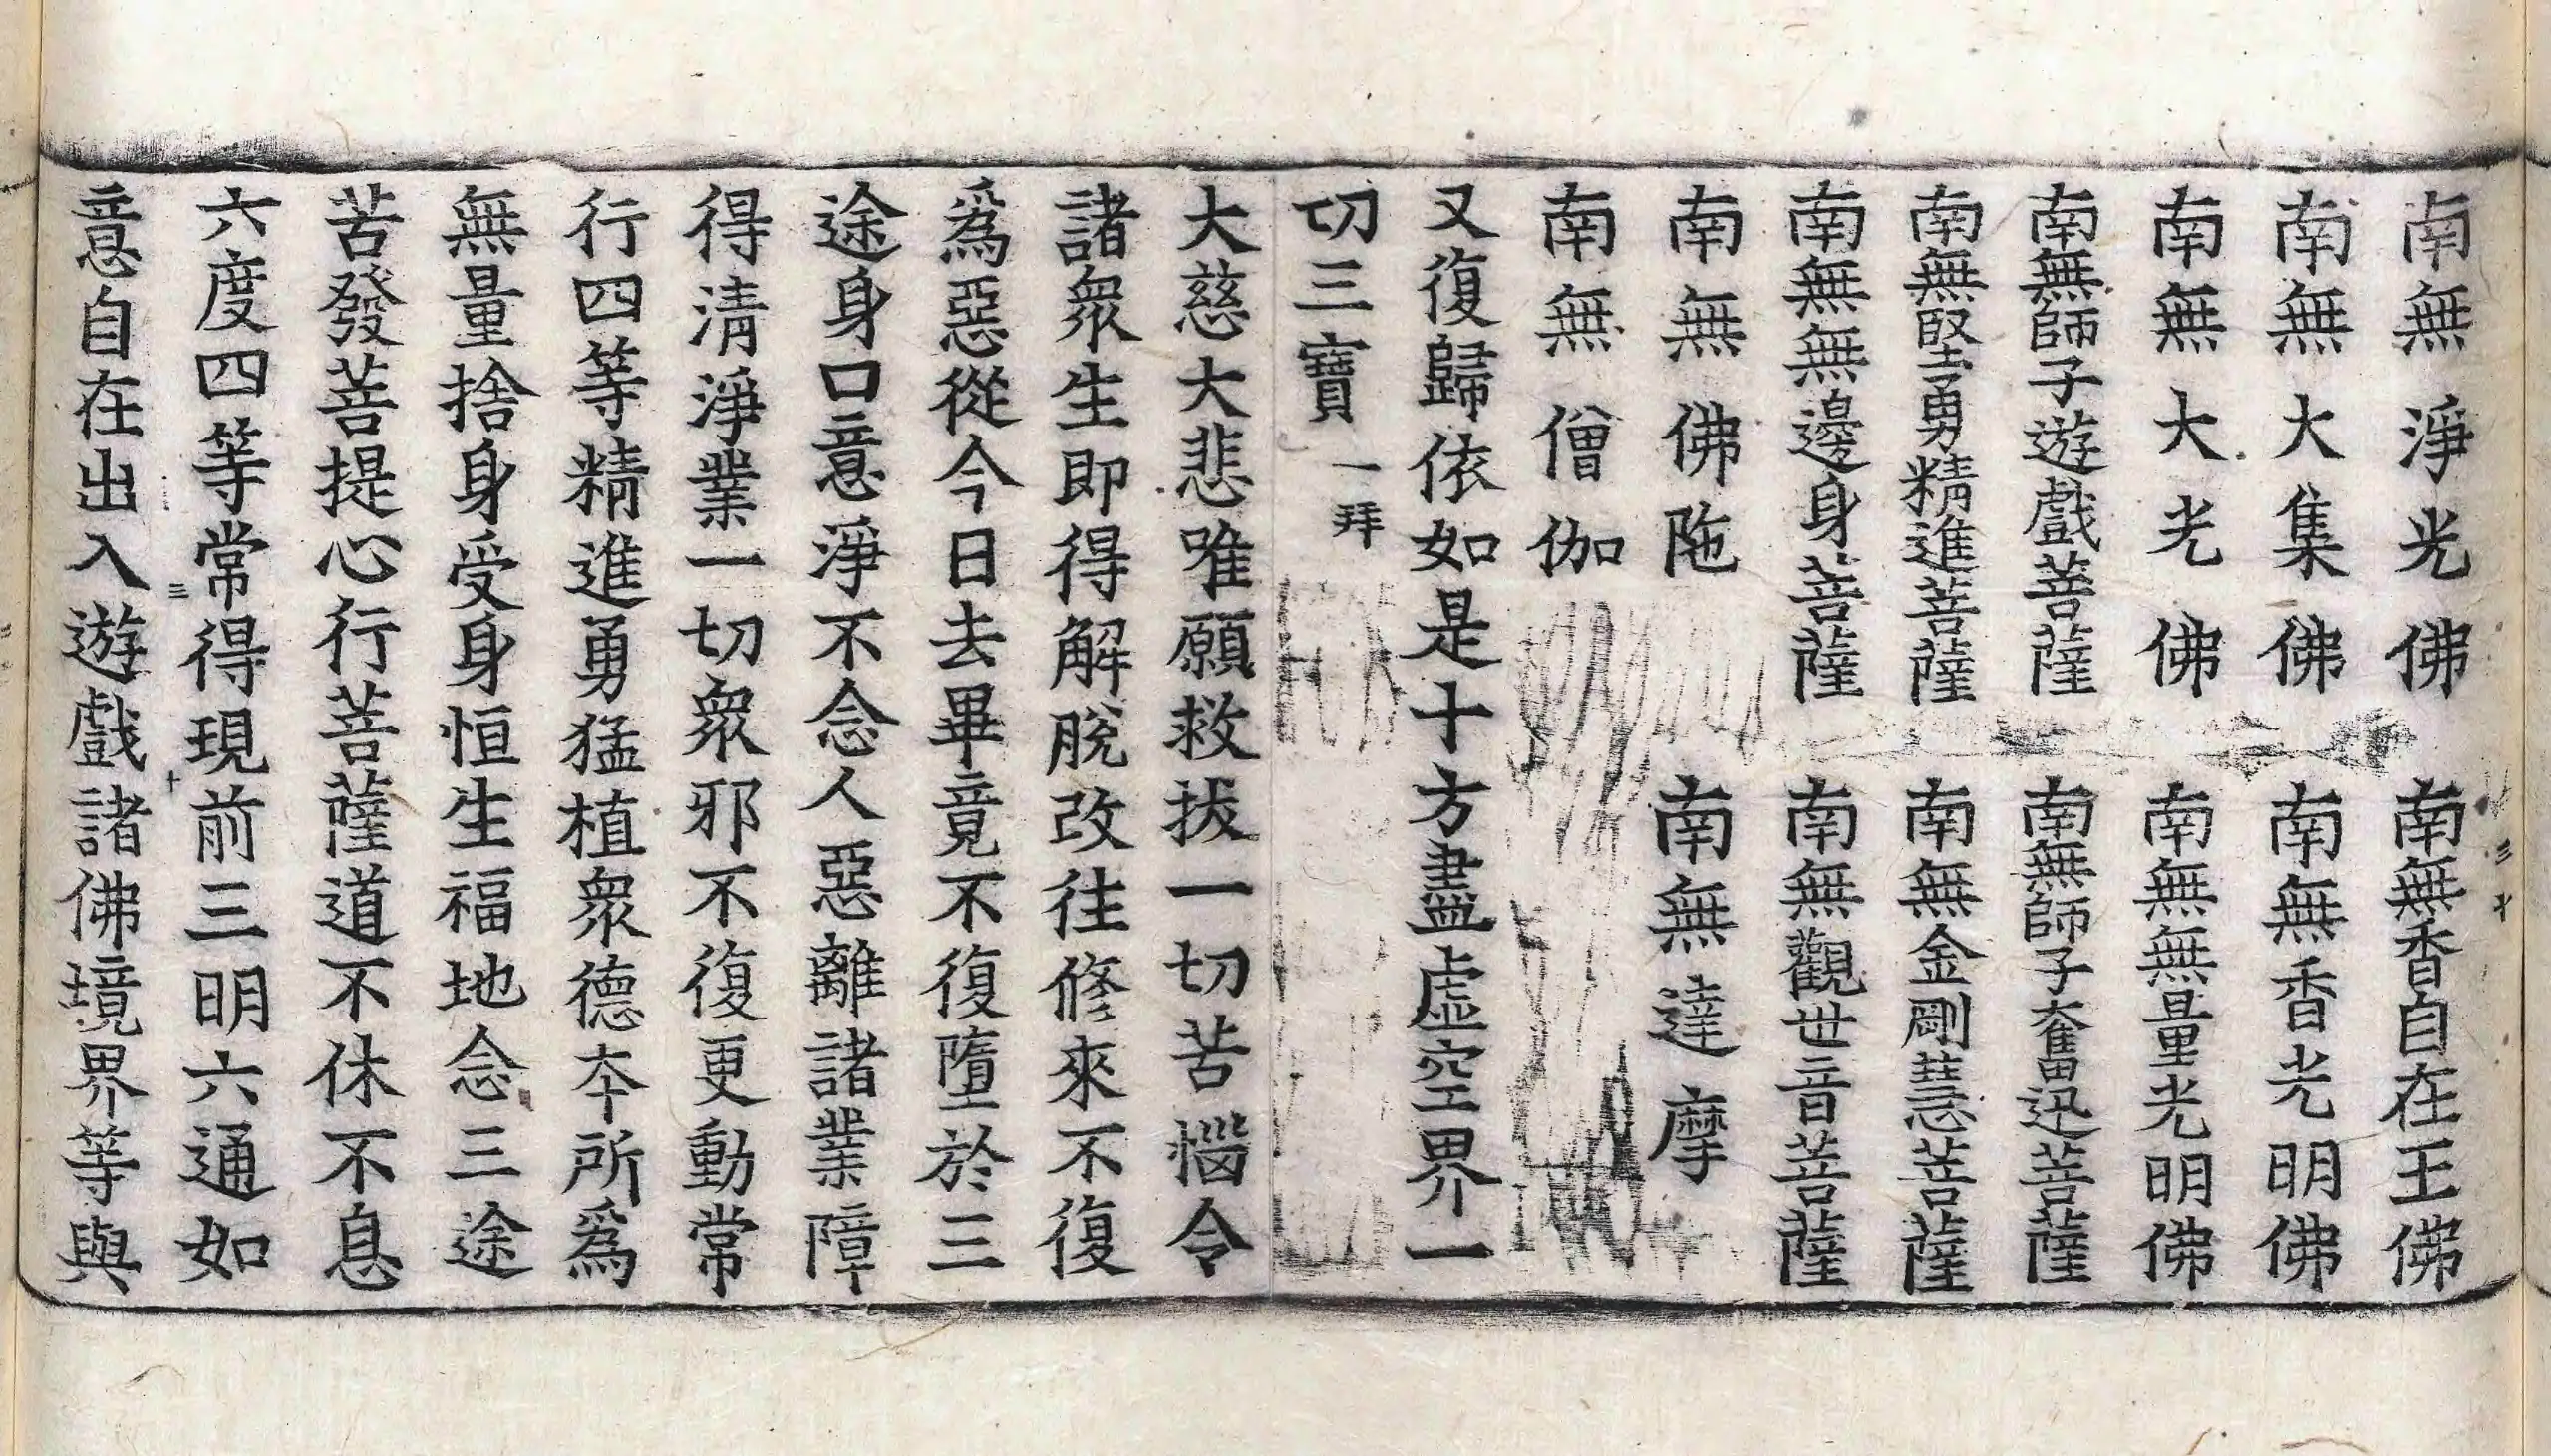 南無淨光佛　南無香自在王佛
南無大集佛　南無香光明佛
南無大光佛　南無無量光明佛
南無師子遊戲菩薩　南無師子奮迅菩薩
南無堅勇精進菩薩　南無金剛慧菩薩
南無無邊身菩薩　南無觀世音菩薩
南無佛陁　南無達摩
南無僧伽
又復歸依如是十方盡虛空界一
切三寶　一拜
大慈大悲唯願救拔一切苦惱令
諸衆生即得解脫改往修來不復
爲惡從今日去畢竟不復墮於三
途身口意淨不念人惡離諸業障
得淸淨業一切衆邪不復更動常
行四等精進勇猛植衆德夲所爲
無量捨身受身恒生福地念三途
苦發菩提心行菩薩道不休不息
六度四等常得現前三明六通如
意自在出入遊戲諸佛境界等與
三十